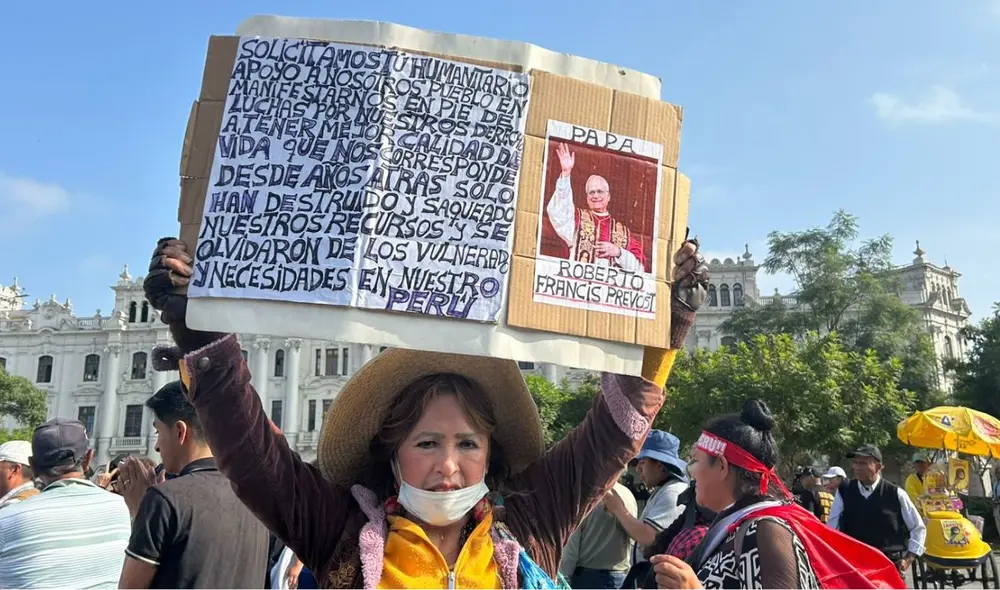 SOLICITAMOS TÚ HUMANITARIO
APOYO A NOSOTROS PUEBLO EN
MANIFESTARNOS EN PIE DE
LUCHAS POR NUESTROS DERECH
A TENER MEJOR CALIDAD DE
VIDA QUE NOS CORRESPONDE
DESDE AÑOS ATRAS SOLO
HAN DESTRUIDO Y SAQUEADO
NUESTROS RECURSOS Y SE
OLVIDARÓN DE LOS VULNERAD
Y NECESIDADES EN NUESTRO
PERÚ
PAPA
ROBERTO
FRANCIS PREVOST